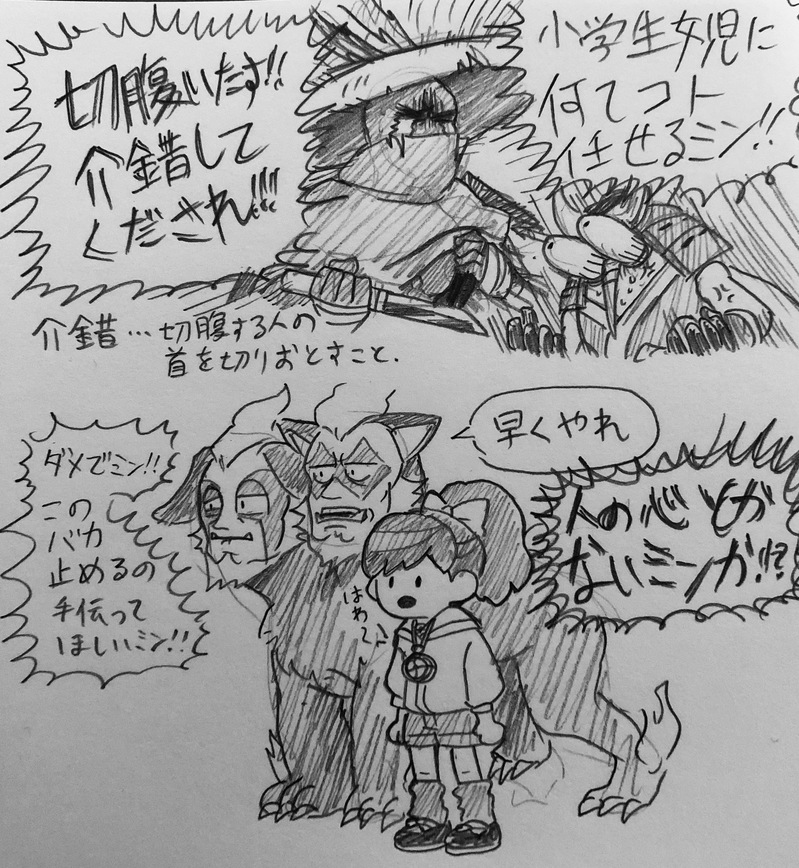 小学生女児に
何てコト
任せるミン!!
切腹いたす!!
介錯して
くだされ!!!
介錯…切腹する人の
首を切りおとすこと.
早くやれ
人の心とか
ないミンか!?
ダメでミン!!
この
バカ
止めるの
手伝って
ほしいミン!!
はわ